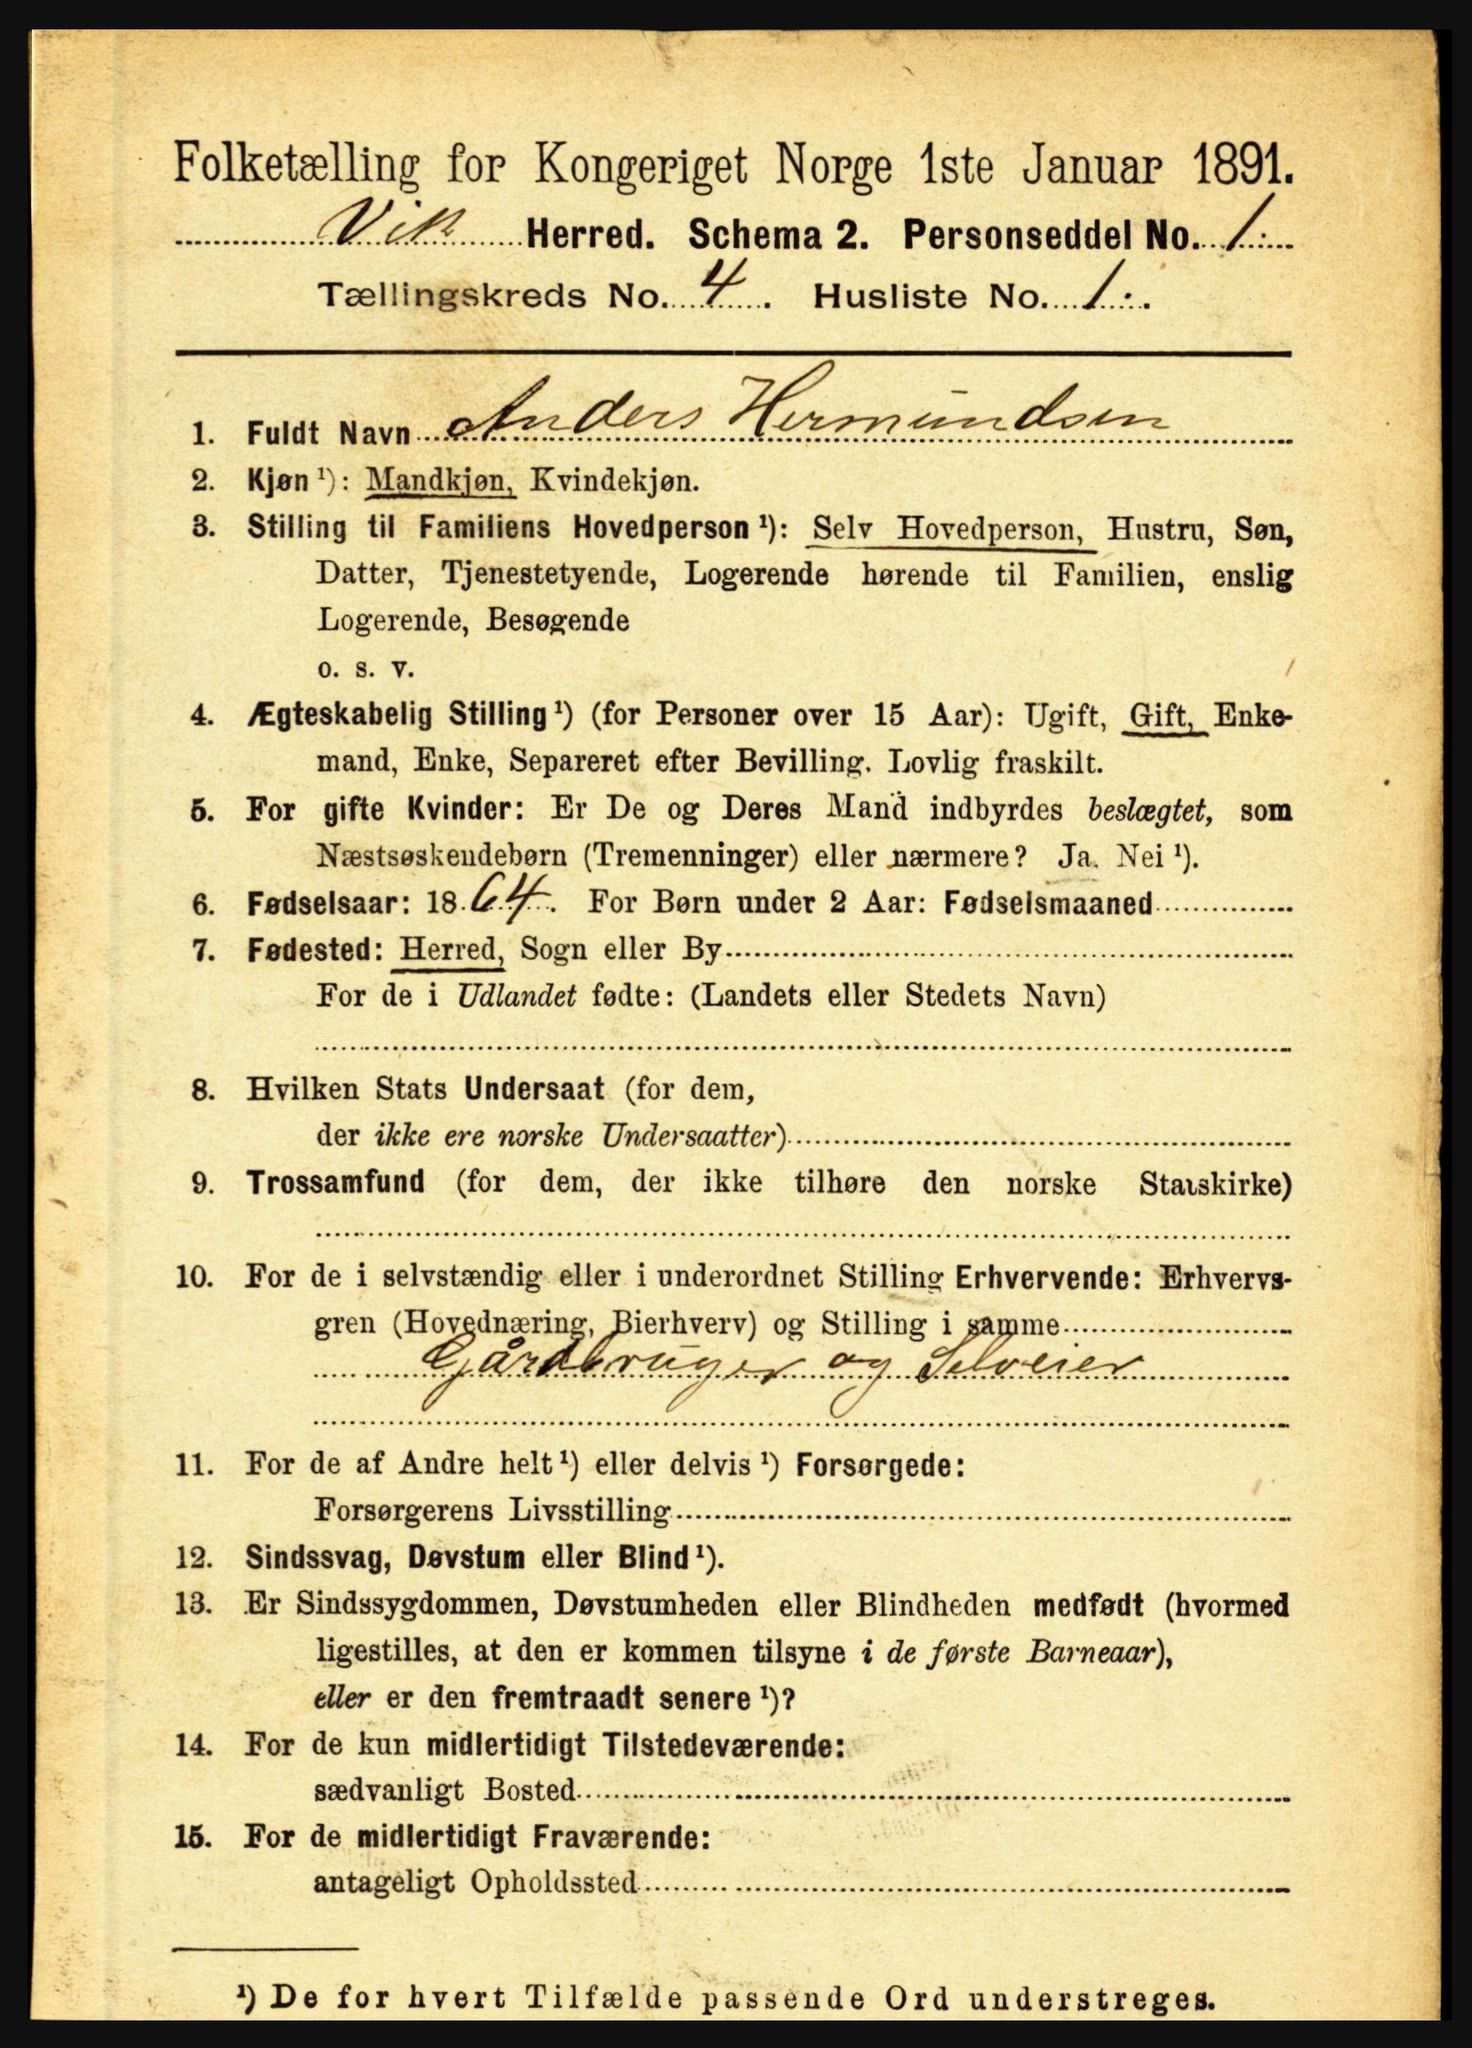 Folketælling for Kongeriget Norge 1ste Januar 1891.
Vik Herred. Schema 2. Personseddel No. 1.
Tællingskreds No. 4. Husliste No. 1.
1. Fuldt Navn Anders Hermundsen
2. Kjøn ¹): Mandkjøn, Kvindekjøn.
3. Stilling til Familiens Hovedperson ¹): Selv Hovedperson, Hustru, Søn,
Datter, Tjenestetyende, Logerende hørende til Familien, enslig
Logerende, Besøgende
o. s. v.
4. Ægteskabelig Stilling ¹) (for Personer over 15 Aar): Ugift, Gift, Enke-
mand, Enke, Separeret efter Bevilling. Lovlig fraskilt.
5. For gifte Kvinder: Er De og Deres Mand indbyrdes beslægtet, som
Næstsøskendebørn (Tremenninger) eller nærmere? Ja. Nei ¹).
6. Fødselsaar: 1864. For Børn under 2 Aar: Fødselsmaaned
7. Fødested: Herred, Sogn eller By
For de i Udlandet fødte: (Landets eller Stedets Navn)
8. Hvilken Stats Undersaat (for dem,
der ikke ere norske Undersaatter)
9. Trossamfund (for dem, der ikke tilhøre den norske Statskirke)
10. For de i selvstændig eller i underordnet Stilling Erhvervende: Erhvervs-
gren (Hovednæring, Bierhverv) og Stilling i samme
Gårdbruger og Selveier
11. For de af Andre helt ¹) eller delvis ¹) Forsørgede:
Forsørgerens Livsstilling
12. Sindssvag, Døvstum eller Blind ¹).
13. Er Sindssygdommen, Døvstumheden eller Blindheden medfødt (hvormed
ligestilles, at den er kommen tilsyne i de første Barneaar),
eller er den fremtraadt senere ¹)?
14. For de kun midlertidigt Tilstedeværende:
sædvanligt Bosted
15. For de midlertidigt Fraværende:
antageligt Opholdssted
¹) De for hvert Tilfælde passende Ord understreges.